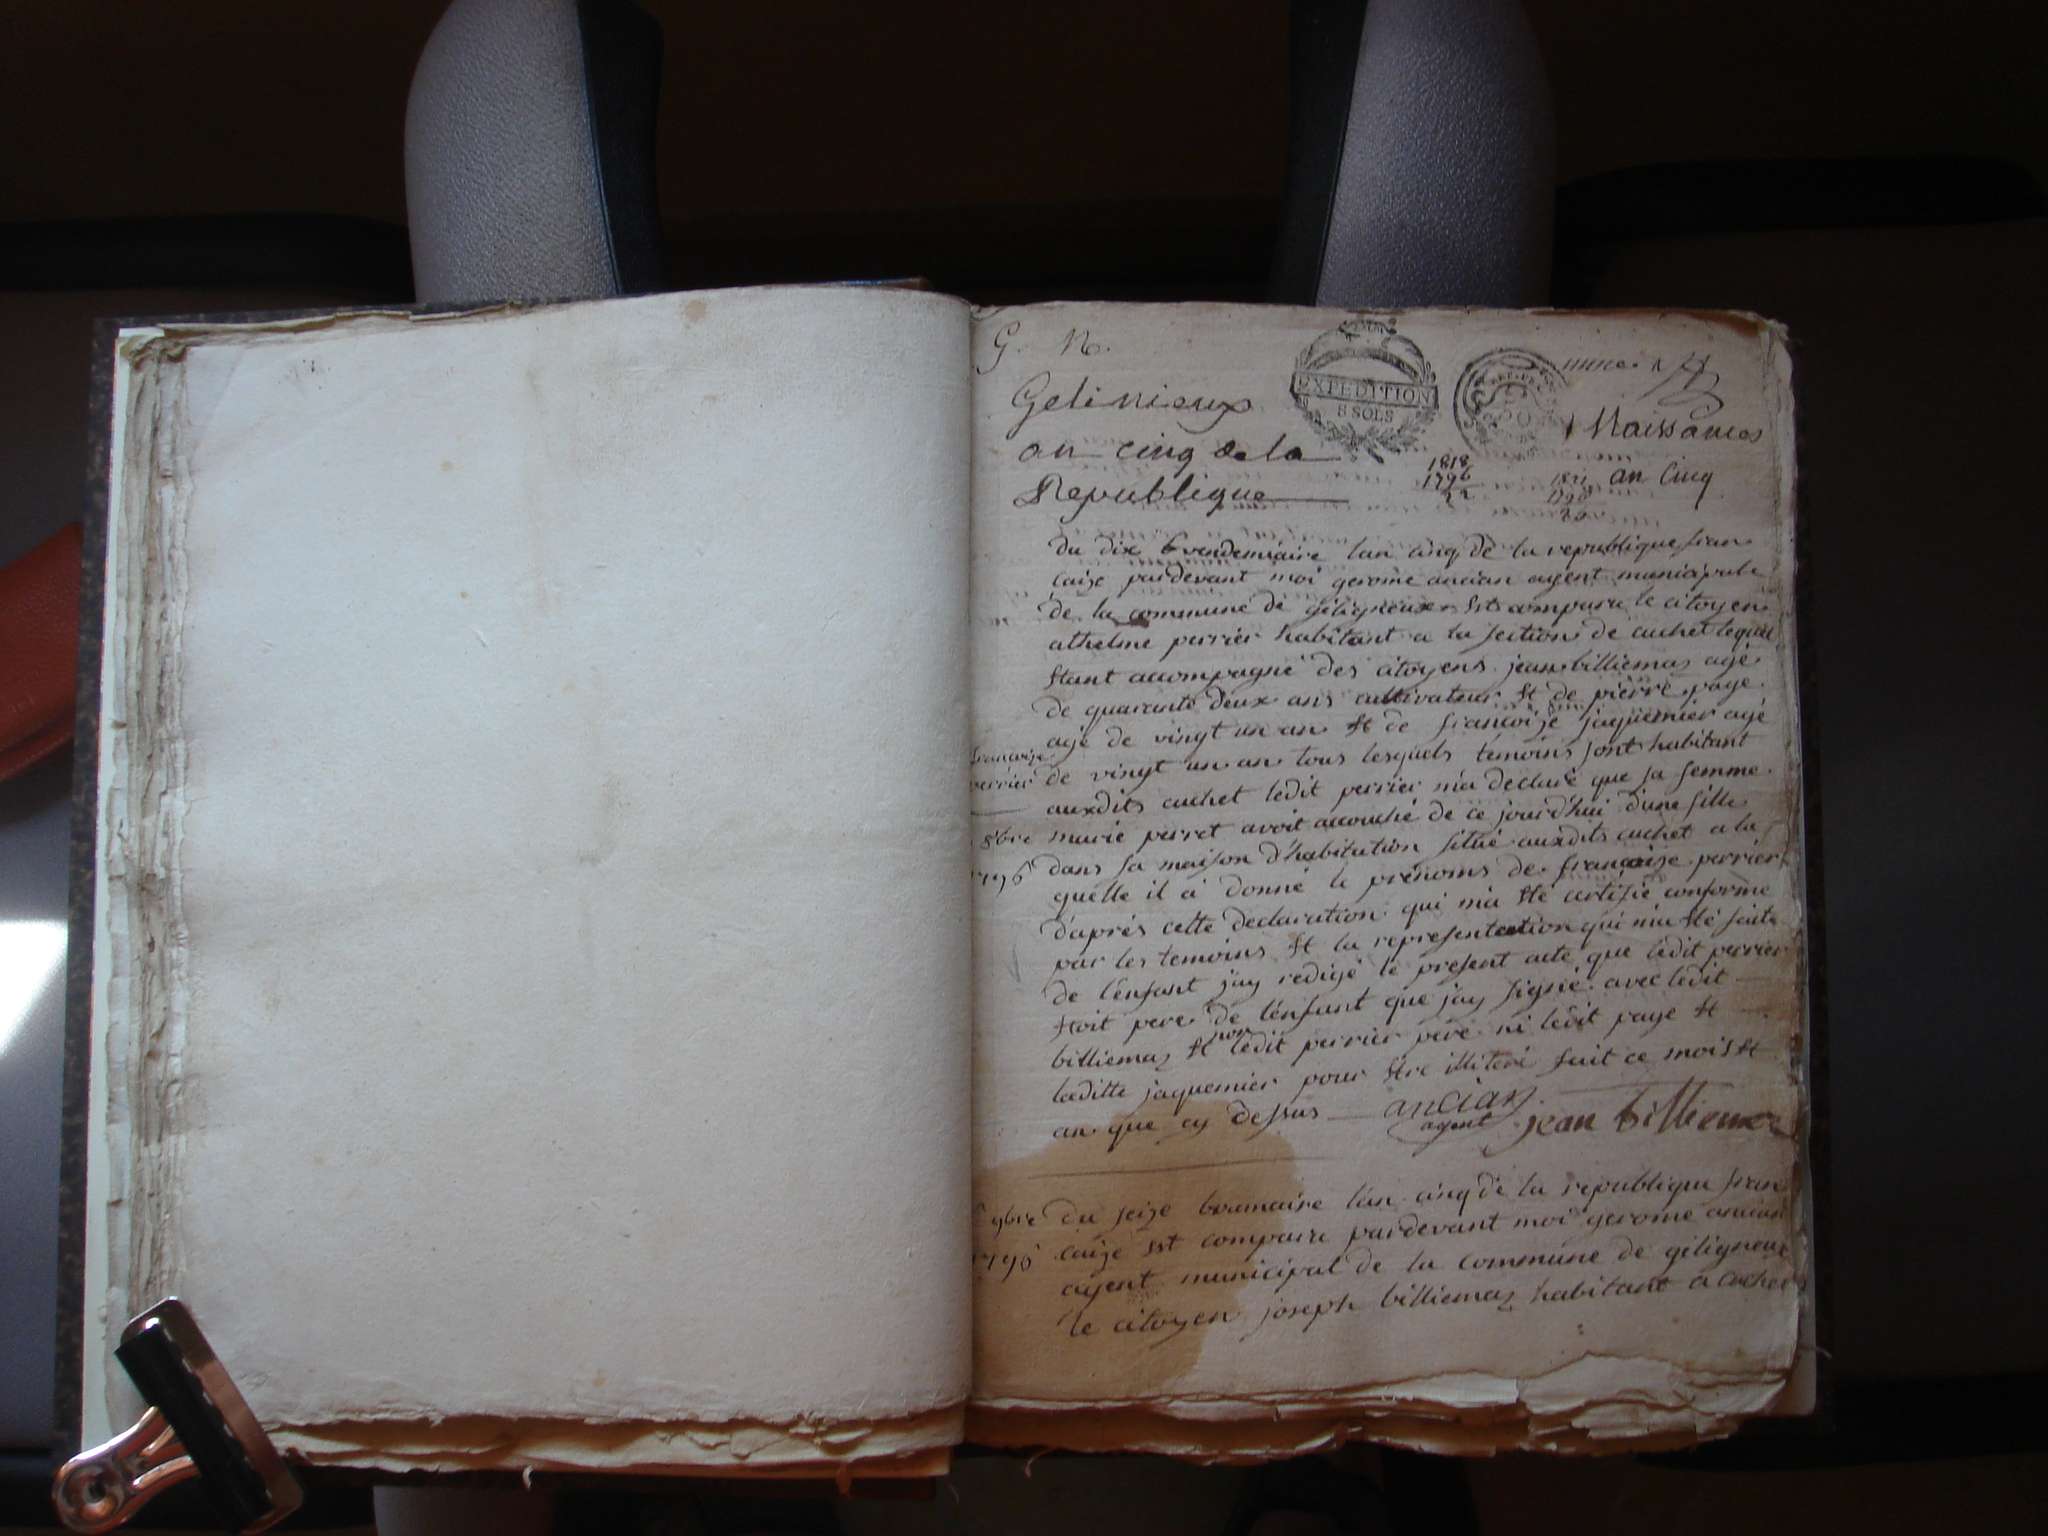 G. N.
EXPEDITION
8 SOLS
Gelinieux
Naissances
an cinq de la
1818
1796
22
an Cinq
Republique
du dix 6 vendemiaire lan cinq de la republique fran
caize pardevant moi gerome ancian agent municipale
de la commune de géligneux st comparu le citoyen
athelme perrier habitant a la section de cuchet lequel
étant accompagné des citoyens jean billiemaz agé
de quarante deux ans cultivateur et de pierre page
agé de vingt un an et de francoize jaquemier agé
francoize
perrier
de vingt un an tous lesquels temoins sont habitant
auxdits cuchet ledit perrier m'a declaré que sa femme
8bre
marie perret avoit accouché de ce jourd'hui d'une fille
dans sa maison d'habitation situé auxdits cuchet a la
1796
quelle il a donné le prénoms de francoize perrier
d'aprés cette declaration qui m'a eté certifié conforme
par les temoins et la representation qui m'a eté faite
de l'enfant j'ay redigé le present acte que ledit perrier
étoit pere de l'énfant que j'ay signé avec ledit
billiemaz et non ledit perrier pere ni ledit page et
laditte jaquemier pour étre illiteré fait ce mois et
an que cy dessus
ancian
agent
jean billiemaz
9bre
1796
du seize brumaire l'an cinq de la republique fran
caize est comparu pardevant moi gerome ancian
agent municipal de la commune de géligneux
le citoyen joseph billiemaz habitant a cuchet